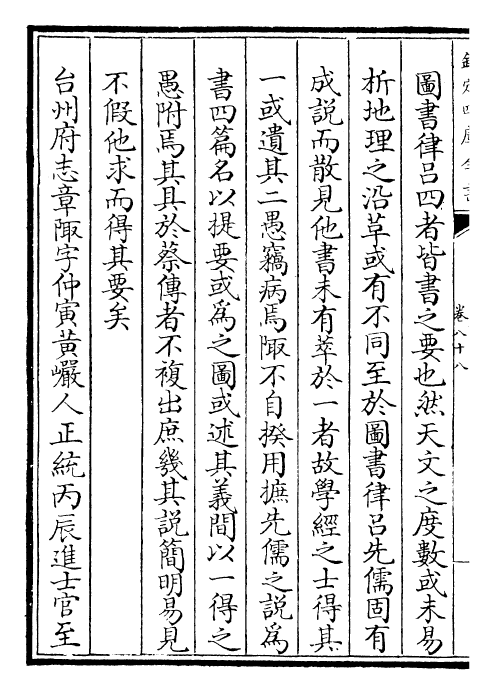 欽定四庫全書
卷八十八
圖書律吕四者皆書之要也然天文之度數或未易
析地理之沿革或有不同至於圖書律吕先儒固有
成説而散見他書未有萃於一者故學經之士得其
一或遺其二愚竊病焉陬不自揆用摭先儒之説為
書四篇名以提要或為之圖或述其義間以一得之
愚附焉其具於蔡傳者不複出庶幾其説簡明易見
不假他求而得其要矣
台州府志章陬字仲寅黄巖人正統丙辰進士官至